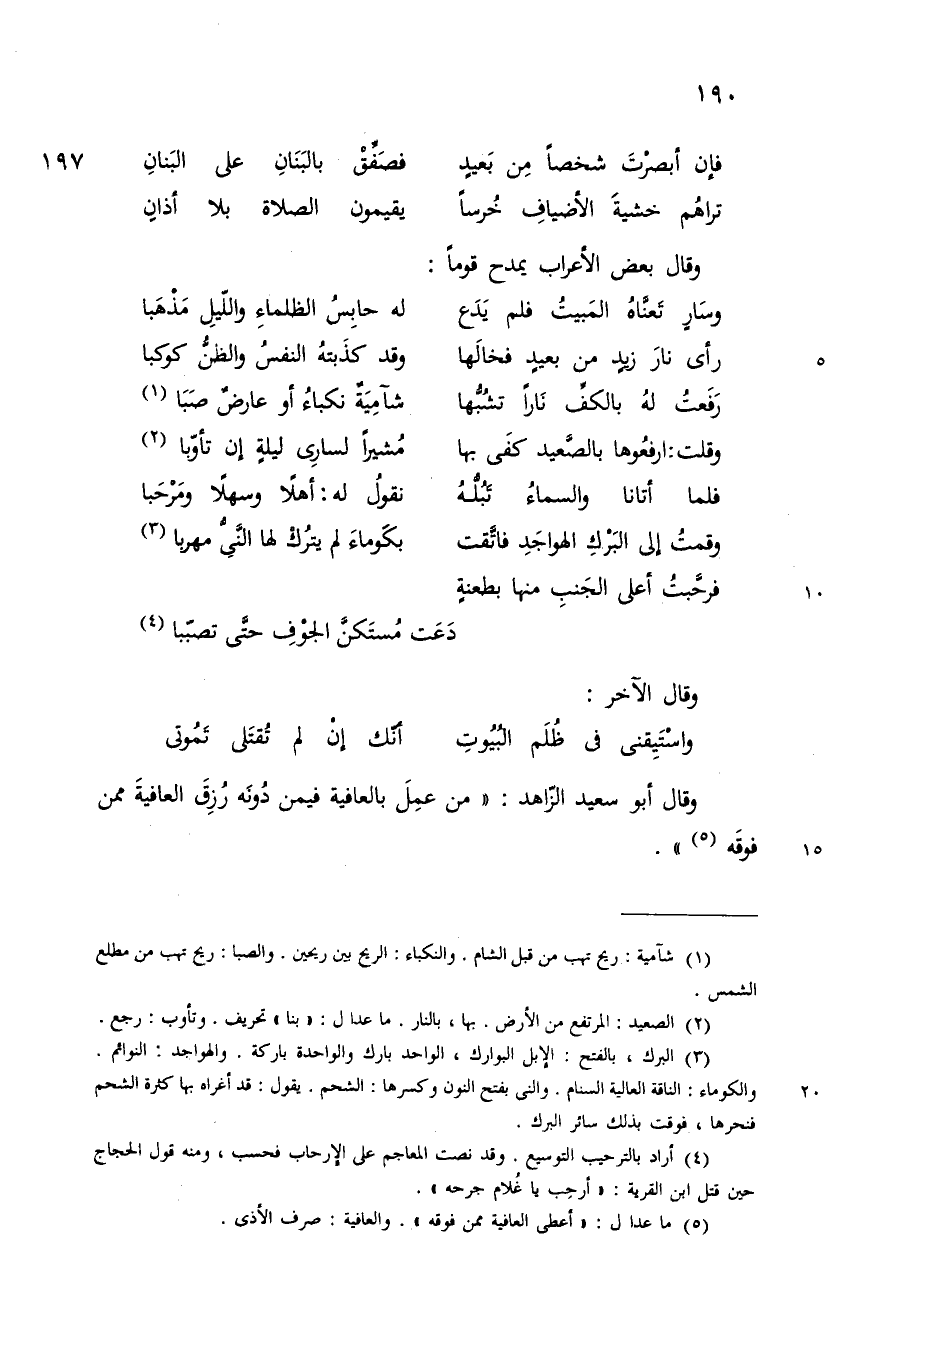 ١٩٠
فإن أبصرْتَ شخصاً مِن بَعيدٍ فصَفِّقْ بالبَنَانِ على البَنانِ ١٩٧
تراهُم خشيةَ الأضيافِ خُرساً يقيمون الصلاة بلا أذانٍ
وقال بعض الأعراب يمدح قوماً :
وسَارٍ تَعنَّاهُ المَبيتُ فلم يَدَع له حابِسُ الظلماءِ واللّيلِ مَذْهَبا
٥ رأى نارَ زيدٍ من بعيدٍ فخالَها وقد كذَبتهُ النفسُ والظنُّ كوكبا
رَفَعتُ لهُ بالكفِّ نَاراً تشبُّها شآمِيَةٌ نكباءُ أو عارضٌ صَبَا (١)
وقلت : ارفعُوها بالصَّعيد كفَى بها مُشيراً لسارِى ليلةٍ إن تأوّبا (٢)
فلما أتانا والسماءُ تَبُلُّهُ نقولُ له : أهلًا وسهلًا ومَرْحَبا
وقمتُ إلى البَرْكِ الهواجَدِ فاتَّقت بكَوماءَ لم يترُكْ لها النَّيُّ مهربا (٣)
١٠ فرحَّبتُ أعلى الجَنبِ منها بطعنةٍ
دَعَت مُستَكنَّ الجوْفِ حتَّى تصبّبا (٤)
وقال الآخر :
واسْتَيِقنى فى ظُلَم البُيُوتِ أنّك إنْ لم تُقتَلى تَمُوتى
وقال أبو سعيد الزّاهد : « من عمِلَ بالعافية فيمن دُونَه رُزِقَ العافيةَ ممن
١٥ فوقَه (٥) » .
(١) شآمية : ريح تهب من قبل الشام . والنكباء : الريح بين ريحين . والصبا : ريح تهب من مطلع
الشمس .
(٢) الصعيد : المرتفع من الأرض . بها ، بالنار . ما عدا ل : « بنا » تحريف . وتأوب : رجع .
(٣) البرك ، بالفتح : الإبل البوارك ، الواحد بارك والواحدة باركة . والهواجد : النوائم .
٢٠ والكوماء : الناقة العالية السنام . والنى بفتح النون وكسرها : الشحم . يقول : قد أغراه بها كثرة الشحم
فنحرها ، فوقت بذلك سائر البرك .
(٤) أراد بالترحيب التوسيع . وقد نصت المعاجم على الإرحاب فحسب ، ومنه قول الحجاج
حين قتل ابن القرية : « أرحِب يا غُلام جرحه » .
(٥) ما عدا ل : « أعطى العافية ممن فوقه » . والعافية : صرف الأذى .